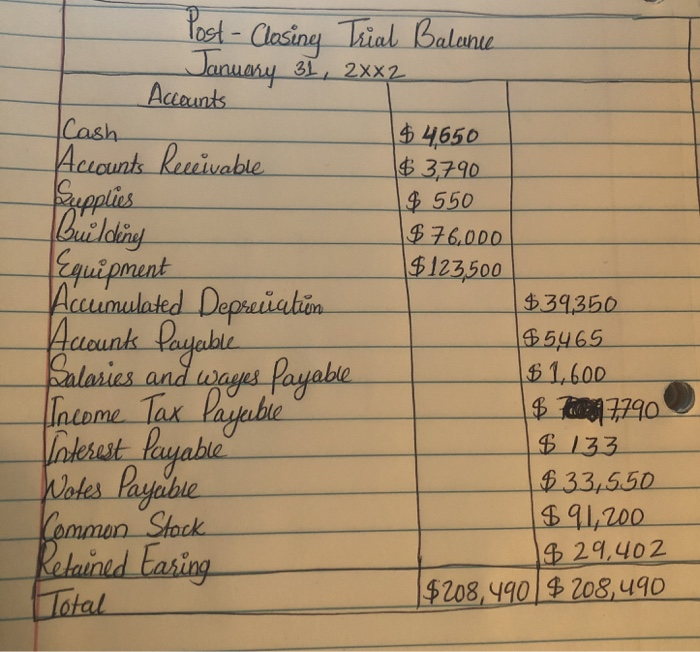 Post-Closing Trial Balance
January 31, 2xx2
Accounts
Cash $4,650
Accounts Receivable $3,790
Supplies $550
Building $76,000
Equipment $123,500
Accumulated Depreciation $39,350
Accounts Payable $5,465
Salaries and wages Payable $1,600
Income Tax Payable $ 7,790
Interest Payable $133
Notes Payable $33,550
Common Stock $91,200
Retained Earing $29,402
Total $208,490 $208,490